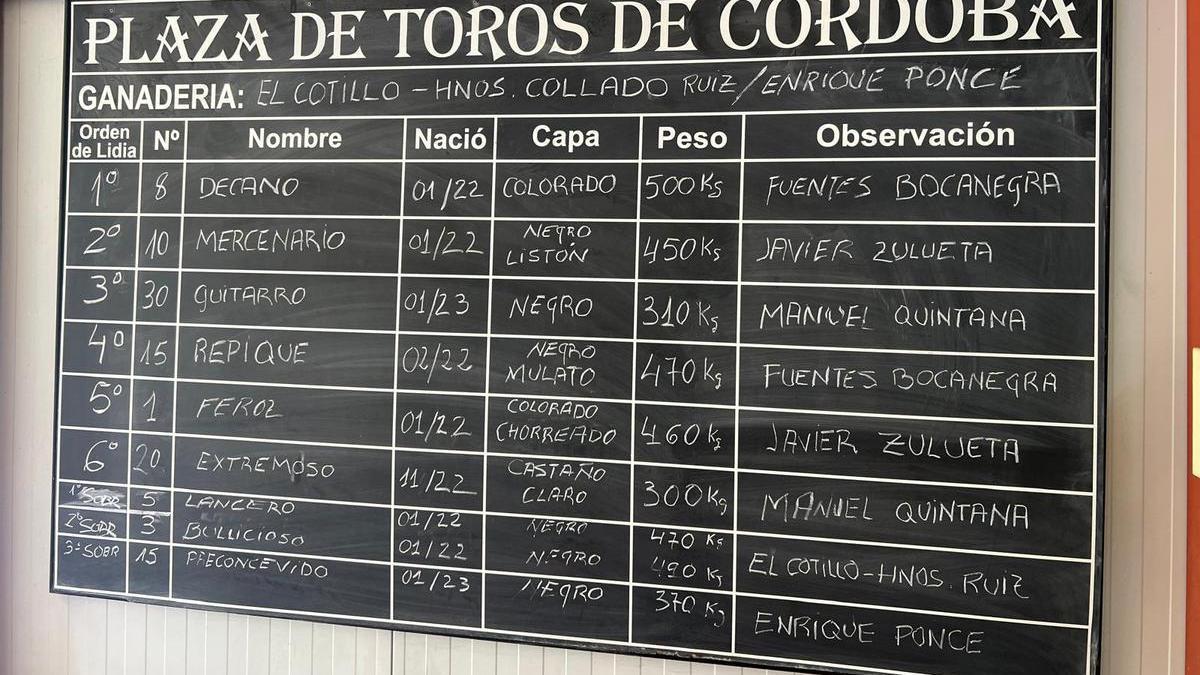 PLAZA DE TOROS DE CÓRDOBA
GANADERIA: EL COTILLO - HNOS. COLLADO RUIZ / ENRIQUE PONCE
Orden de Lidia Nº Nombre Nació Capa Peso Observación
1º 8 DECANO 01/22 COLORADO 500 Kg FUENTES BOCANEGRA
2º 10 MERCENARIO 01/22 NEGRO LISTÓN 450 Kg JAVIER ZULUETA
3º 30 GUITARRO 01/23 NEGRO 310 Kg MANUEL QUINTANA
4º 15 REPIQUE 02/22 NEGRO MULATO 470 Kg FUENTES BOCANEGRA
5º 1 FEROZ 01/22 COLORADO CHORREADO 460 Kg JAVIER ZULUETA
6º 20 EXTREMOSO 11/22 CASTAÑO CLARO 300 Kg MANUEL QUINTANA
1º SOBR 5 LANCERO 01/22 NEGRO 470 Kg
2º SOBR 3 BULLICIOSO 01/22 NEGRO 490 Kg EL COTILLO - HNOS. RUIZ
3º SOBR 15 PRECONCEVIDO 01/23 NEGRO 370 Kg ENRIQUE PONCE